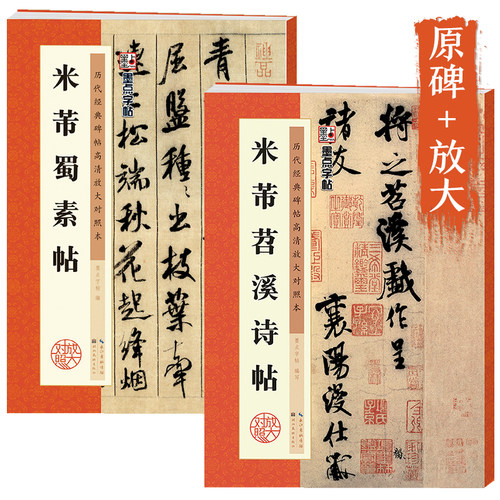 原碑+放大
米芾蜀素帖
历代经典碑帖高清放大对照本
墨点字帖
放大对照
青
屈盤種種出枝葉牽
連上松端秋花起絳烟
米芾苕溪诗帖
历代经典碑帖高清放大对照本
墨点字帖
放大对照
將之苕溪戲作呈
諸友
襄陽漫仕黻